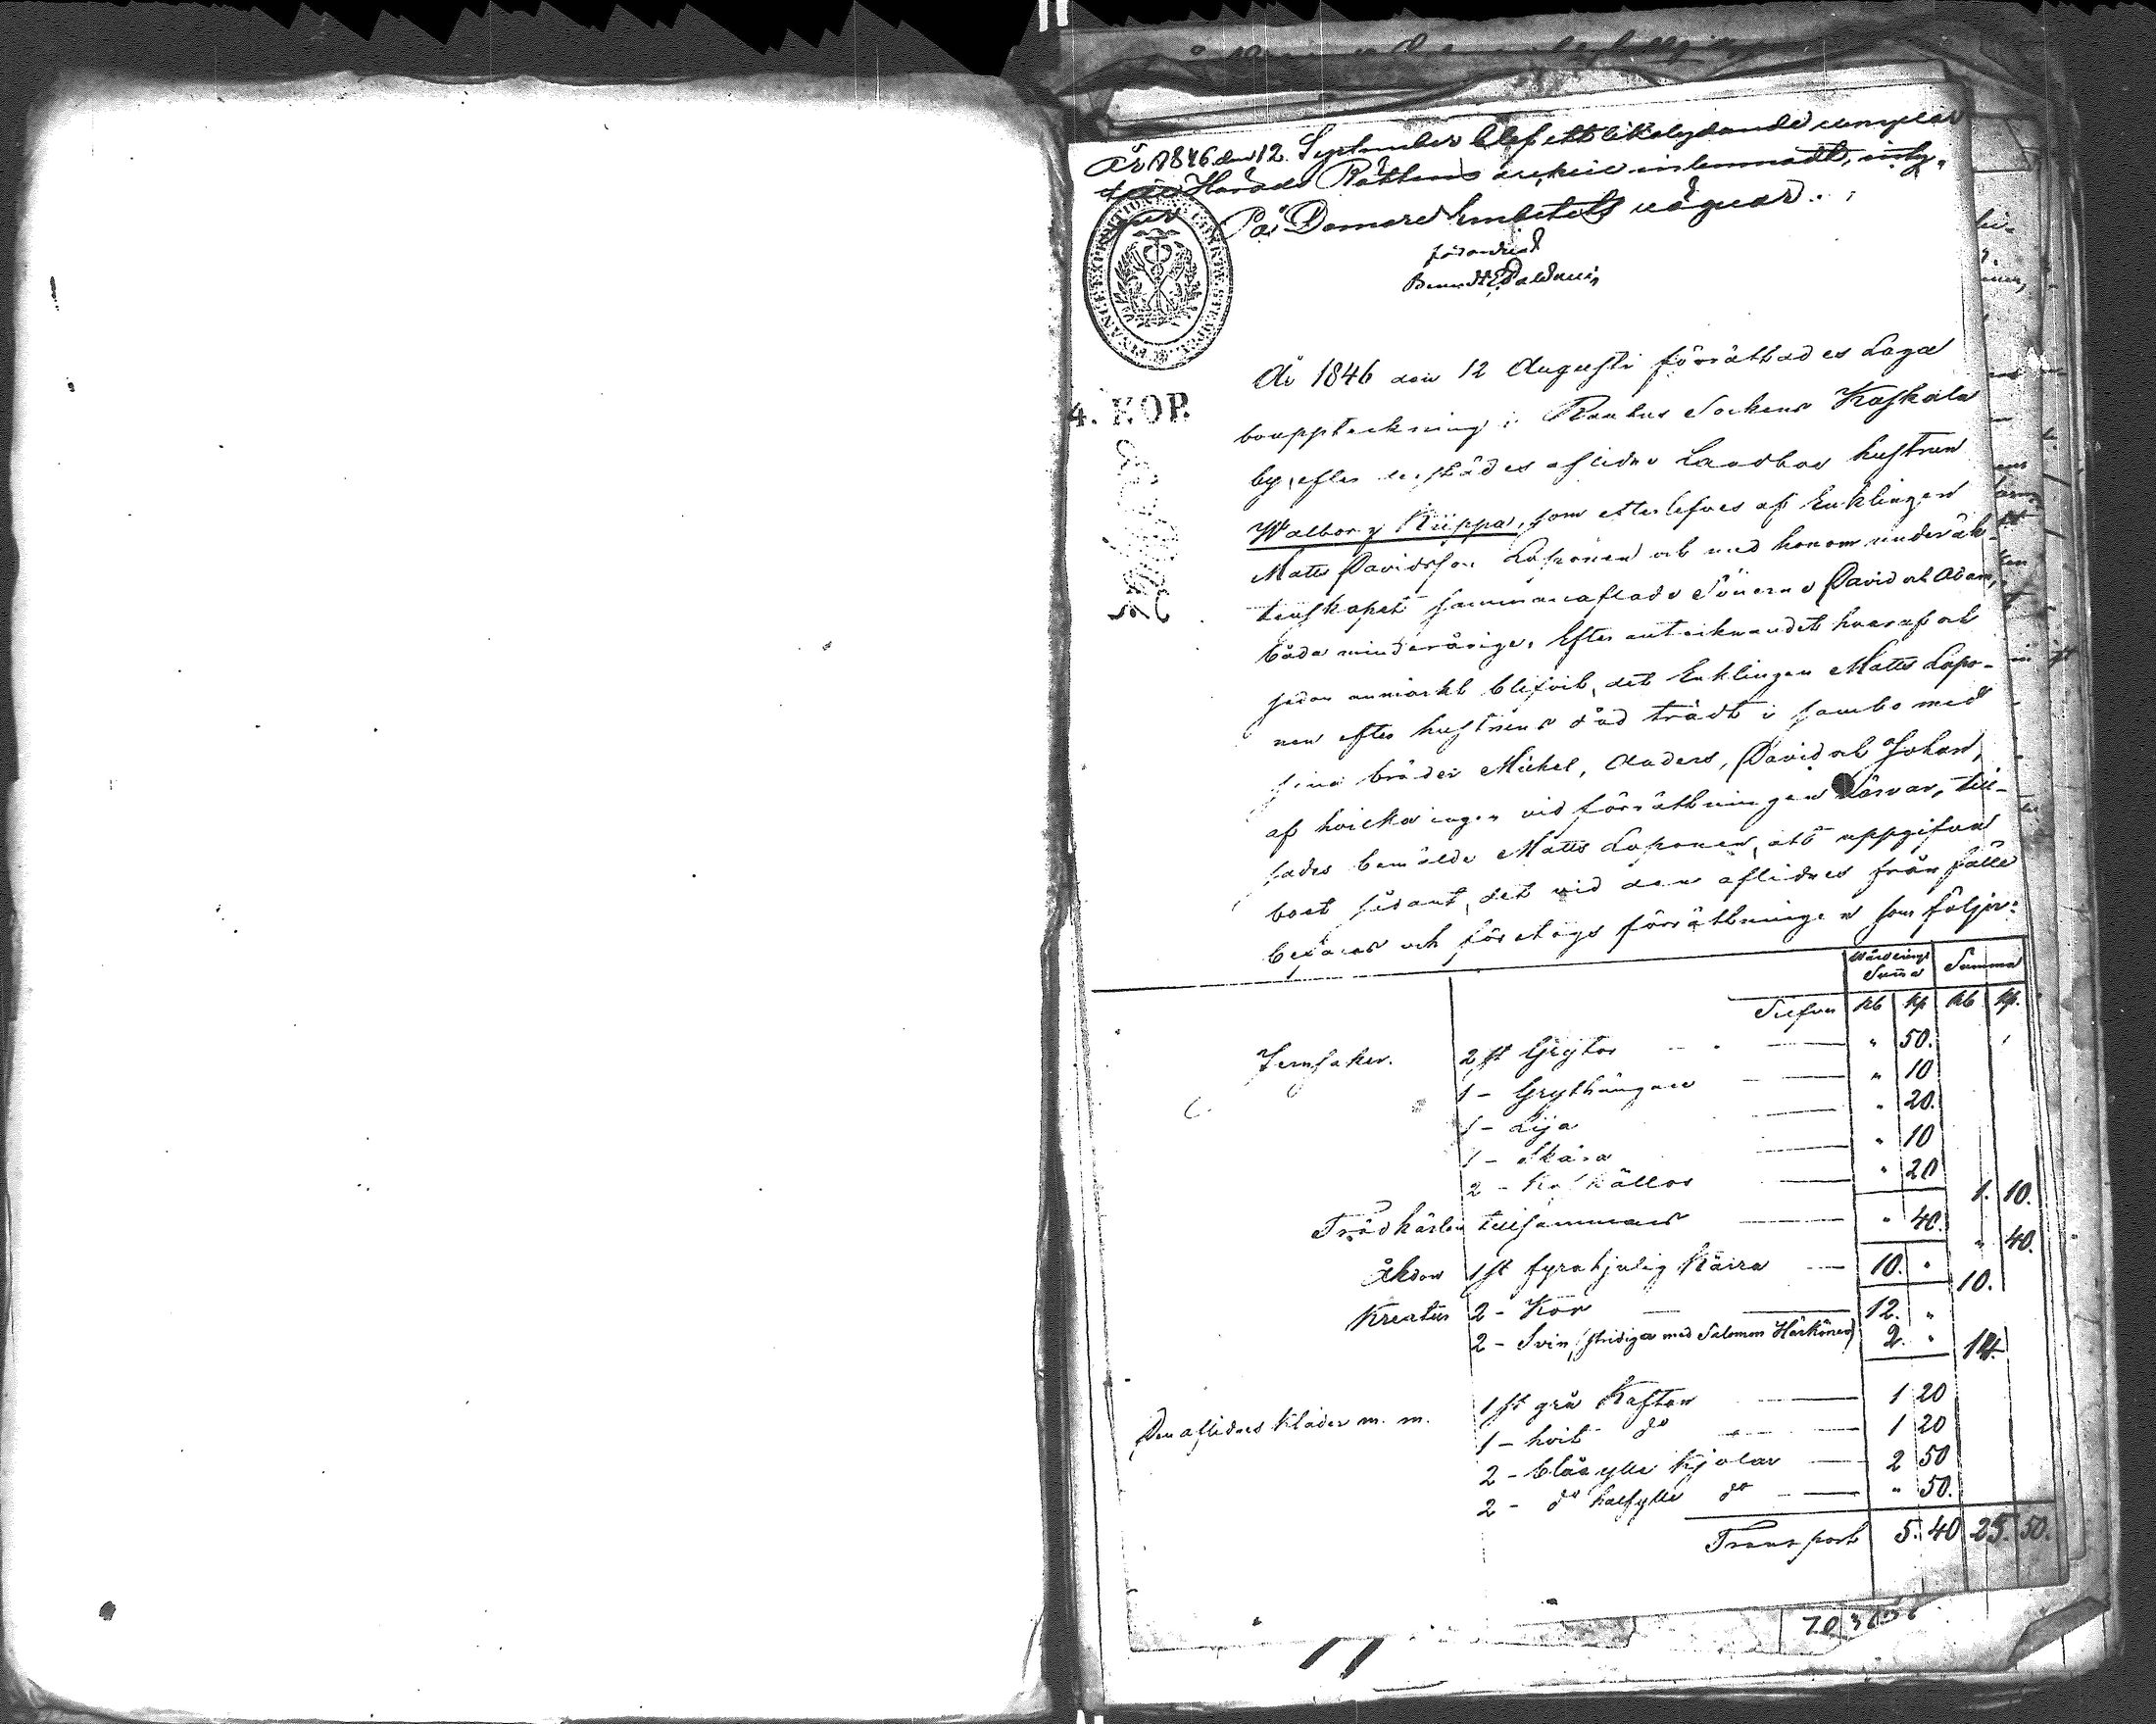 År 1846 den 12 September blef ett likalydande exemplar
Härads Rättens archiv inlemnadt, inty-
gar På Domare Embetets vägnar.
FINANCE EXPEDITIONENS
4. KOP.
År 1846 den 12 Augusti förrättades Laga
bouppteckning i Rautus Sockens Kaskala
by, efter derstädes aflidne Landbo hustrun
Walborg Kiippa, som efterlefves af Enklingen
Matts Davidsson Loponen och med honom under äk-
tenskapet sammanaflade Sönerne David och Adam,
båda minderårige. Efter antecknandet huaraf och
sedan anmärkt blifvit, det Enklingen Matts Lopo-
nen efter hustruns död trädt i sambo med
sina bröder Michel, Anders, David och Johan,
af hvilka ingen vid förrättningen närvar, till-
sades bemälde Matts Loponen, att uppgifva
boet sådant, det vid den aflidnes frånfälle
befans och företogs förrättningen som följer:
Wärderings Summa Summa
Silfver Rb Kp Rb Kp.
Jernsaker. 2 st Grytor " 50.
1 - Grythängare " 10
1 - Lija " 20.
1 - Skära " 10
2 - " 20 1. 10.
Trädkärlen tillsammans " 40. " 40.
Åkdon 1 st fyrahjulig Kärra 10. " 10.
Kreatur 2 - Kor 12. "
2 - Svin, (stridiga med Salomon Härkönen) 2. " 14.
Den aflidnes kläder m. m. 1 st grå Kaftan 1 20
1 - hvit do 1 20
2 - blåa ylle Kjolar 2 50
2 - do halfylle do " 50.
Transport 5. 40 25. 50.